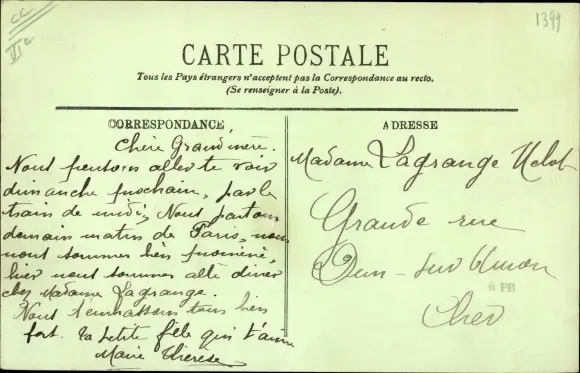 CC
VIe
1399
CARTE POSTALE
Tous les Pays étrangers n'acceptent pas la Correspondance au recto.
(Se renseigner à la Poste).
CORRESPONDANCE
Chère Grandmère.
Nous pensons aller te voir
dimanche prochain, par le
train de midi, Nous partons
demain matin de Paris, nous
nous sommes bien promené,
hier nous sommes allé diner
chez Madame Lagrange.
Nous t'embrassons tous bien
fort. ta petite fille qui t'aime
Marie Thérèse
ADRESSE
Madame Lagrange
Grande rue
Dun-sur Auron
Cher